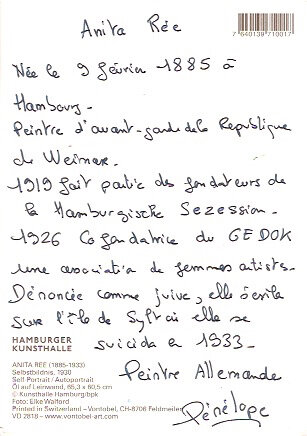 Anita Rée
7 640139 710017
Née le 9 février 1885 à
Hambourg -
Peintre d'avant-garde de la République
de Weimar.
1919 fait partie des fondateurs de
la Hamburgische Sezession -
1926 Cofondatrice du GEDOK
une association de femmes artistes.
Dénoncée comme juive, elle s'exile
sur l'île de Sylt où elle se
suicida e 1933.
HAMBURGER
KUNSTHALLE
Peintre Allemande
Pénélope
ANITA RÉE (1885-1933)
Selbstbildnis, 1930
Self-Portrait / Autoportrait
Öl auf Leinwand, 65,3 x 60,5 cm
© Kunsthalle Hamburg/bpk
Foto: Elke Walford
Printed in Switzerland – Vontobel, CH-8706 Feldmeilen
VD 2818 – www.vontobel-art.com